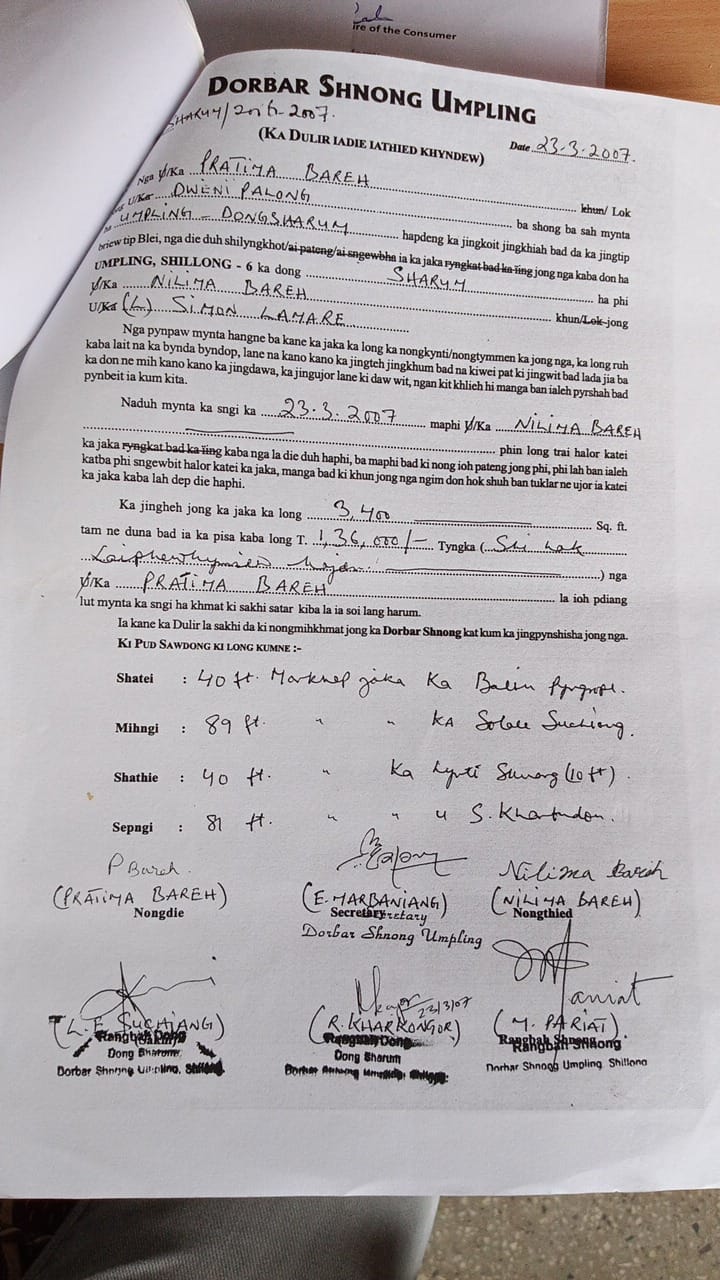 ire of the Consumer
DORBAR SHNONG UMPLING
SHARUM/2007.
(KA DULIR IADIE IATHIED KHYNDEW) Date 23-3-2007.
Nga U/Ka PRATIMA BAREH khun/ Lok
U/Ka DWENI PALONG ba shong ba sah mynta
ha UMPLING - DONGSHARUM hapdeng ka jingkoit jingkhiah bad da ka jingtip
briew tip Blei, nga die duh shilyngkhot/ai pateng/ai sngewbha ia ka jaka ryngkat bad ka iing jong nga kaba don ha
UMPLING, SHILLONG - 6 ka dong SHARUM ha phi
U/Ka NILIMA BAREH khun/Lok jong
U/Ka (L) SIMON LAMARE
Nga pynpaw mynta hangne ba kane ka jaka ka long ka nongkynti/nongtymmen ka jong nga, ka long ruh
kaba lait na ka bynda byndop, lane na kano kano ka jingteh jingkhum bad na kiwei pat ki jingwit bad lada jia ba
ka don ne mih kano kano ka jingdawa, ka jingujor lane ki daw wit, ngan kit khlieh hi manga ban ialeh pyrshah bad
pynbeit ia kum kita.
Naduh mynta ka sngi ka 23.3.2007 maphi U/Ka NILIMA BAREH
phin long trai halor katei
ka jaka ryngkat bad ka iing kaba nga la die duh haphi, ba maphi bad ki nong ioh pateng jong phi, phi lah ban ialeh
katba phi sngewbit halor katei ka jaka, manga bad ki khun jong nga ngim don hok shuh ban tuklar ne ujor ia katei
ka jaka kaba lah dep die haphi.
Ka jingheh jong ka jaka ka long 3,400 Sq. ft.
tam ne duna bad ia ka pisa kaba long T. 1,36,000/- Tyngka (Shi lak
Laiphewhynriew hajar) nga
U/Ka PRATIMA BAREH la ioh pdiang
lut mynta ka sngi ha khmat ki sakhi satar kiba la ia soi lang harum.
Ia kane ka Dulir la sakhi da ki nongmihkhmat jong ka Dorbar Shnong kat kum ka jingpynshisha jong nga.
KI PUD SAWDONG KI LONG KUMNE :-
Shatei : 40 ft. Marknep jaka Ka Balin
Mihngi : 89 ft. " " KA Suchiang.
Shathie : 40 ft. " Ka lynti Shnong (10 ft).
Sepngi : 81 ft. " " U S.
P Bareh. Nilima Bareh
(PRATIMA BAREH) (E. MARBANIANG) (NILIMA BAREH)
Nongdie Secretary Nongthied
Dorbar Shnong Umpling
23/3/07 Pariat
(L.E. SUCHIANG) (R. KHARKONGOR) (M. PARIAT)
Rangbah Dong Rangbah Dong Rangbah Shnong
Dong Sharum Dong Sharum Dorbar Shnong Umpling, Shillong
Dorbar Shnong Umpling, Shillong Dorbar Shnong Umpling, Shillong